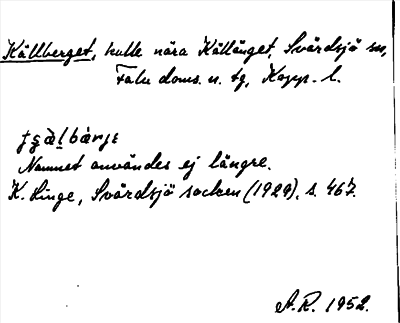 Källberget, kulle nära Källänget, Svärdsjö sn,
Falu doms. n. tg, Kopp. l.
Namnet användes ej längre.
K. Linge, Svärdsjö socken (1929), s. 467.
A.R. 1952.